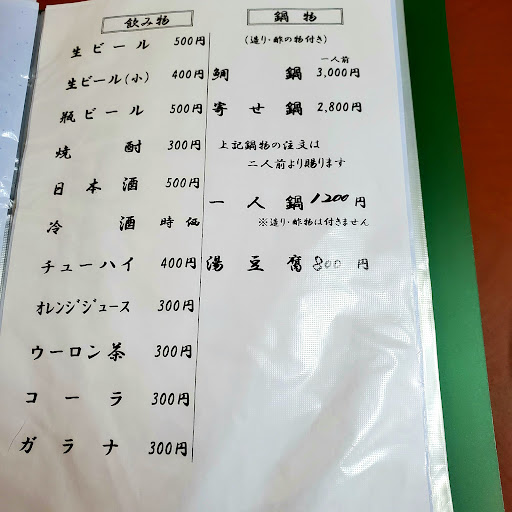 飲み物
生ビール 500円
生ビール(小) 400円
瓶ビール 500円
焼酎 300円
日本酒 500円
冷酒 時価
チューハイ 400円
オレンジジュース 300円
ウーロン茶 300円
コーラ 300円
ガラナ 300円
鍋物
(造り・酢の物付き)
一人前
鯛鍋 3,000円
寄せ鍋 2,800円
上記鍋物の注文は
二人前より賜ります
一人鍋 1200円
※造り・酢物は付きません
湯豆腐 800円